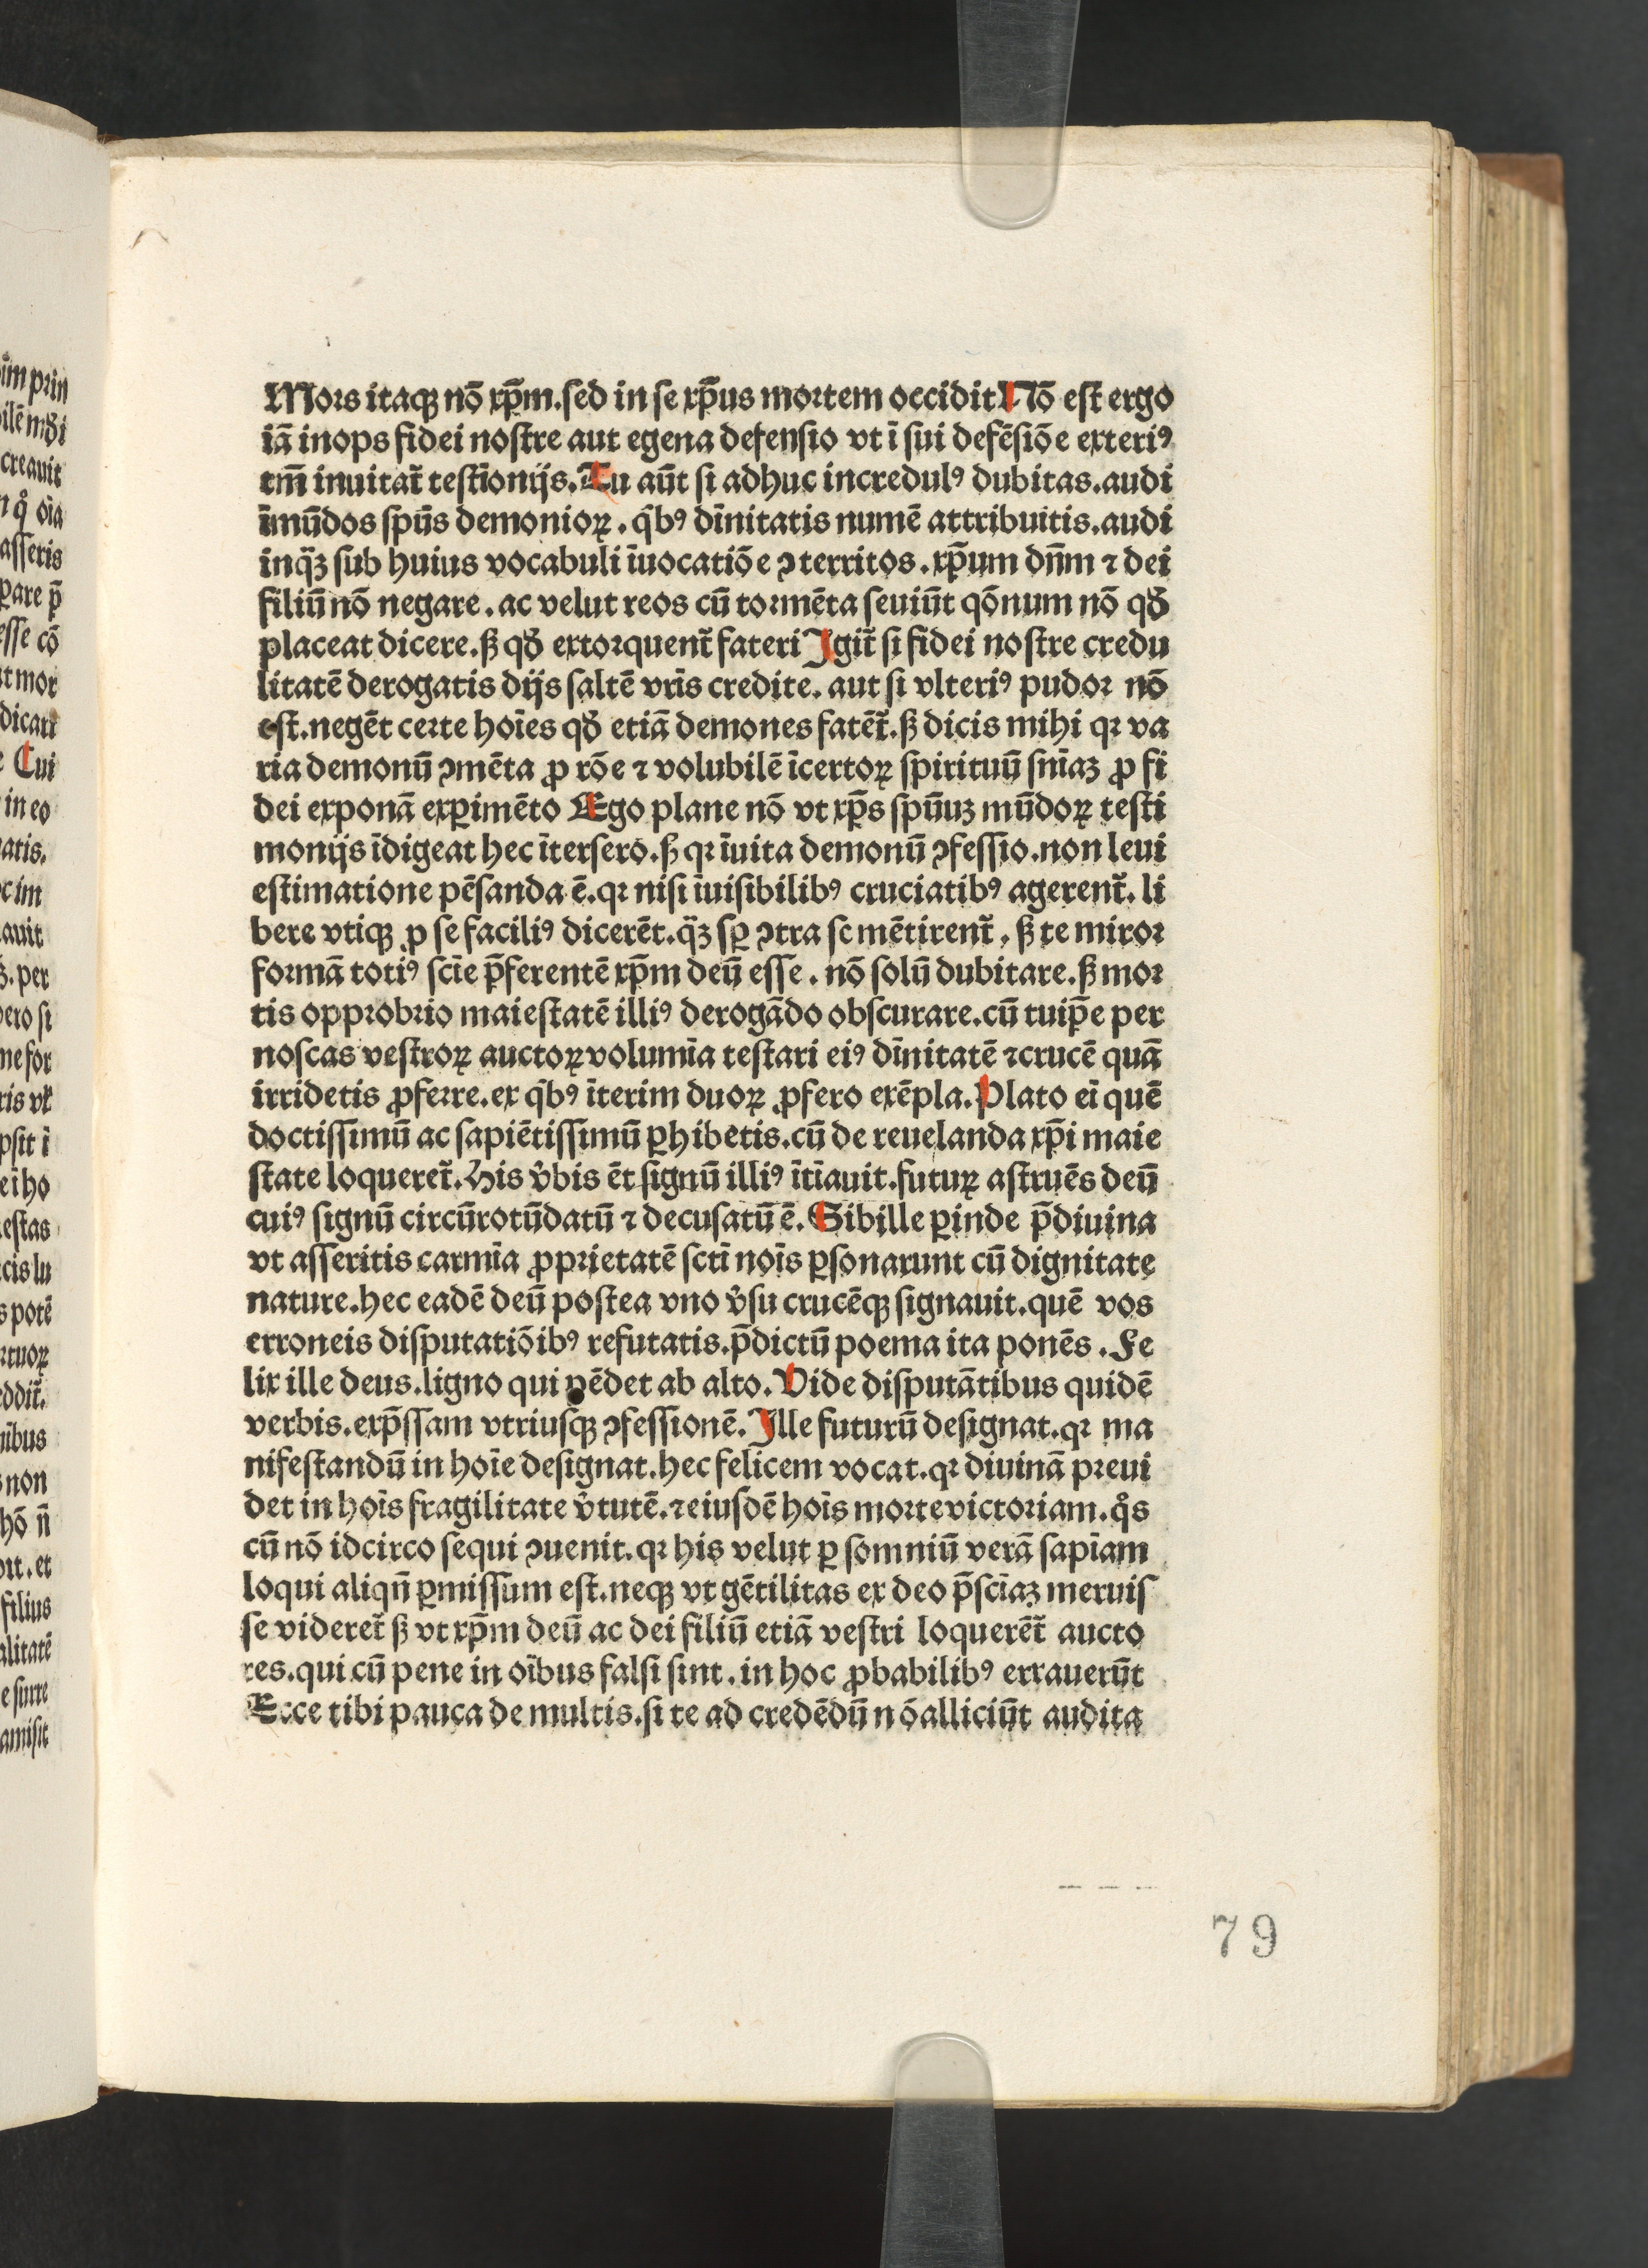 Mors itaqꝫ nō xp̄m.sed in se xp̄us mortem occidit Nō est ergo
iā inops fidei nostre aut egena defensio vt ī sui defēsiōe exteriꝰ
tm̄ inuitat᷑ testīonijs.Tu aūt si adhuc incredulꝰ dubitas.audi
īmūdos spūs demonioꝝ.qͥbꝰ dīnitatis numē attribuitis.audi
inqͣꝫ sub huius vocabuli īuocatiōe ꝯterritos.xp̄um dn̄m ⁊ dei
filiū nō negare.ac velut reos cū tormēta seuiūt qōnum nō qđ
placeat dicere.ß qđ extorquent᷑ fateri Igit᷑ si fidei nostre credu
litatē derogatis dijs saltē vr̄is credite.aut si vlteriꝰ pudor nō
est.negēt certe hoīes qđ etiā demones fatēt᷑.ß dicis mihi qꝛ va
ria demonū ꝯmēta ꝓ rōe ⁊ volubilē īcertoꝝ spirituū sn̄iaꝫ ꝓ fi
dei exponā exꝑimēto Ego plane nō vt xp̄s spūuꝫ mūdoꝝ testi
monijs īdigeat hec īterfero.ß qꝛ īuita demonū ꝯfessio.non leui
estimatione pēsanda ē.qꝛ nisi īuisibilibꝰ cruciatibꝰ agerent᷑.li
bere vtiqꝫ ꝓ se faciliꝰ dicerēt.qͣꝫ sꝑ ꝯtra se mētirent᷑.ß te miror
formā totiꝰ scīe p̄ferentē xp̄m deū esse.nō solū dubitare.ß mor
tis opprobrio maiestatē illiꝰ derogādo obscurare.cū tuip̄e per
noscas vestroꝝ auctoꝝ volumīa testari eiꝰ dīnitatē ⁊crucē quā
irridetis ꝓferre.ex qͥbꝰ īterim duoꝝ ꝓfero exēpla.Plato eī quē
doctissimū ac sapiētissimū ꝑhibetis.cū de reuelanda xp̄i maie
state loqueret᷑.His v̓bis ēt signū illiꝰ ītīauit.futuꝝ astruēs deū
cuiꝰ signū circūrotūdatū ⁊ decusatū ē.Sibille ꝑinde p̄diuina
vt asseritis carmīa ꝓprietatē sctī noīs ꝑsonarunt cū dignitate
nature.hec eadē deū postea vno v̓su crucēqꝫ signauit.quē vos
erroneis disputatiōibꝰ refutatis.p̄dictū poema ita ponēs.Fe
lix ille deus.ligno qui pēdet ab alto.Vide disputātibus quidē
verbis.exp̄ssam vtriusqꝫ ꝯfessionē.Ille futurū designat.qꝛ ma
nifestandū in hoīe designat.hec felicem vocat.qꝛ diuinā preui
det in hoīs fragilitate v̓tutē.⁊eiusdē hoīs morte victoriam.qͦs
cū nō idcirco sequi ꝯuenit.qꝛ his velut ꝑ somniū verā sapīam
loqui aliqn̄ ꝑmissum est.neqꝫ vt gētilitas ex deo p̄scīaꝫ meruis
se videret᷑ ß vt xp̄m deū ac dei filiū etiā vestri loquerēt᷑ aucto
res.qui cū pene in oībus falsi sint.in hoc ꝓbabilibꝰ errauerūt
Ecce tibi pauca de multis.si te ad credēdū nō alliciūt audita
79